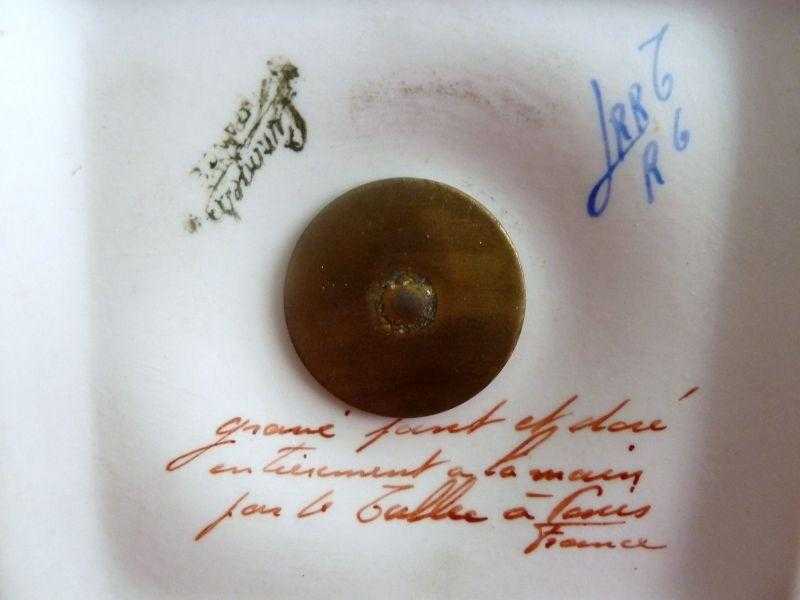 JRR 6
R 6
gravé peint et doré
entièrement a la main
par le Tallec à Paris
France